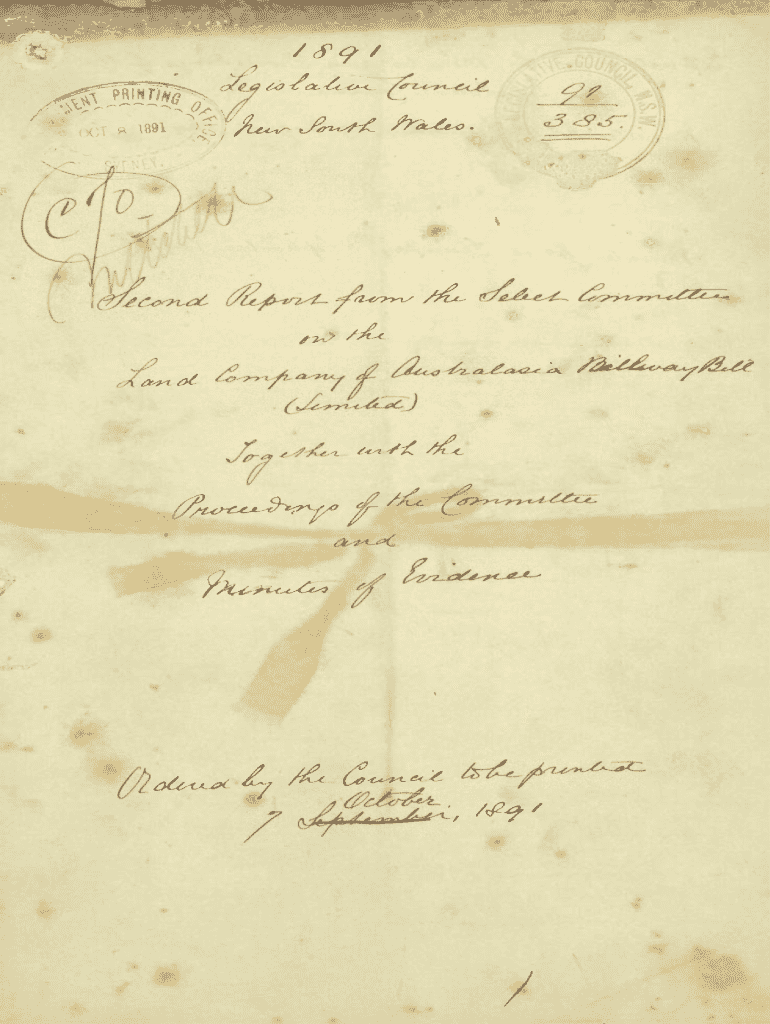 1891
Legislative Council
New South Wales.
MENT PRINTING OFFICE
OCT. 8. 1891
SYDNEY.
ATIVE COUNCIL, N.S.W.
91
385.
Second Report from the Select Committee
on the
Land Company of Australasia Railway Bill
(Limited)
Together with the
Proceedings of the Committee
and
Minutes of Evidence
Ordered by the Council to be printed
October
7 September, 1891